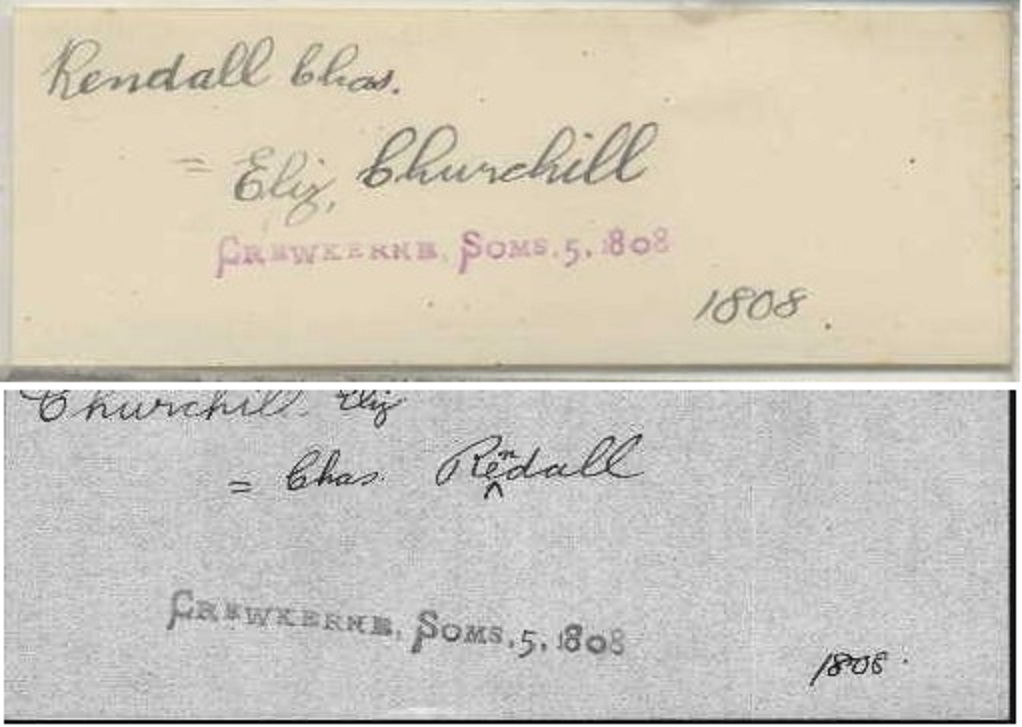 Rendall Chas.
= Eliz, Churchill
CREWKERNE, SOMS. 5. 1808
1808.
Churchill. Eliz
= Chas. Rendall
CREWKERNE, SOMS. 5. 1808
1808.